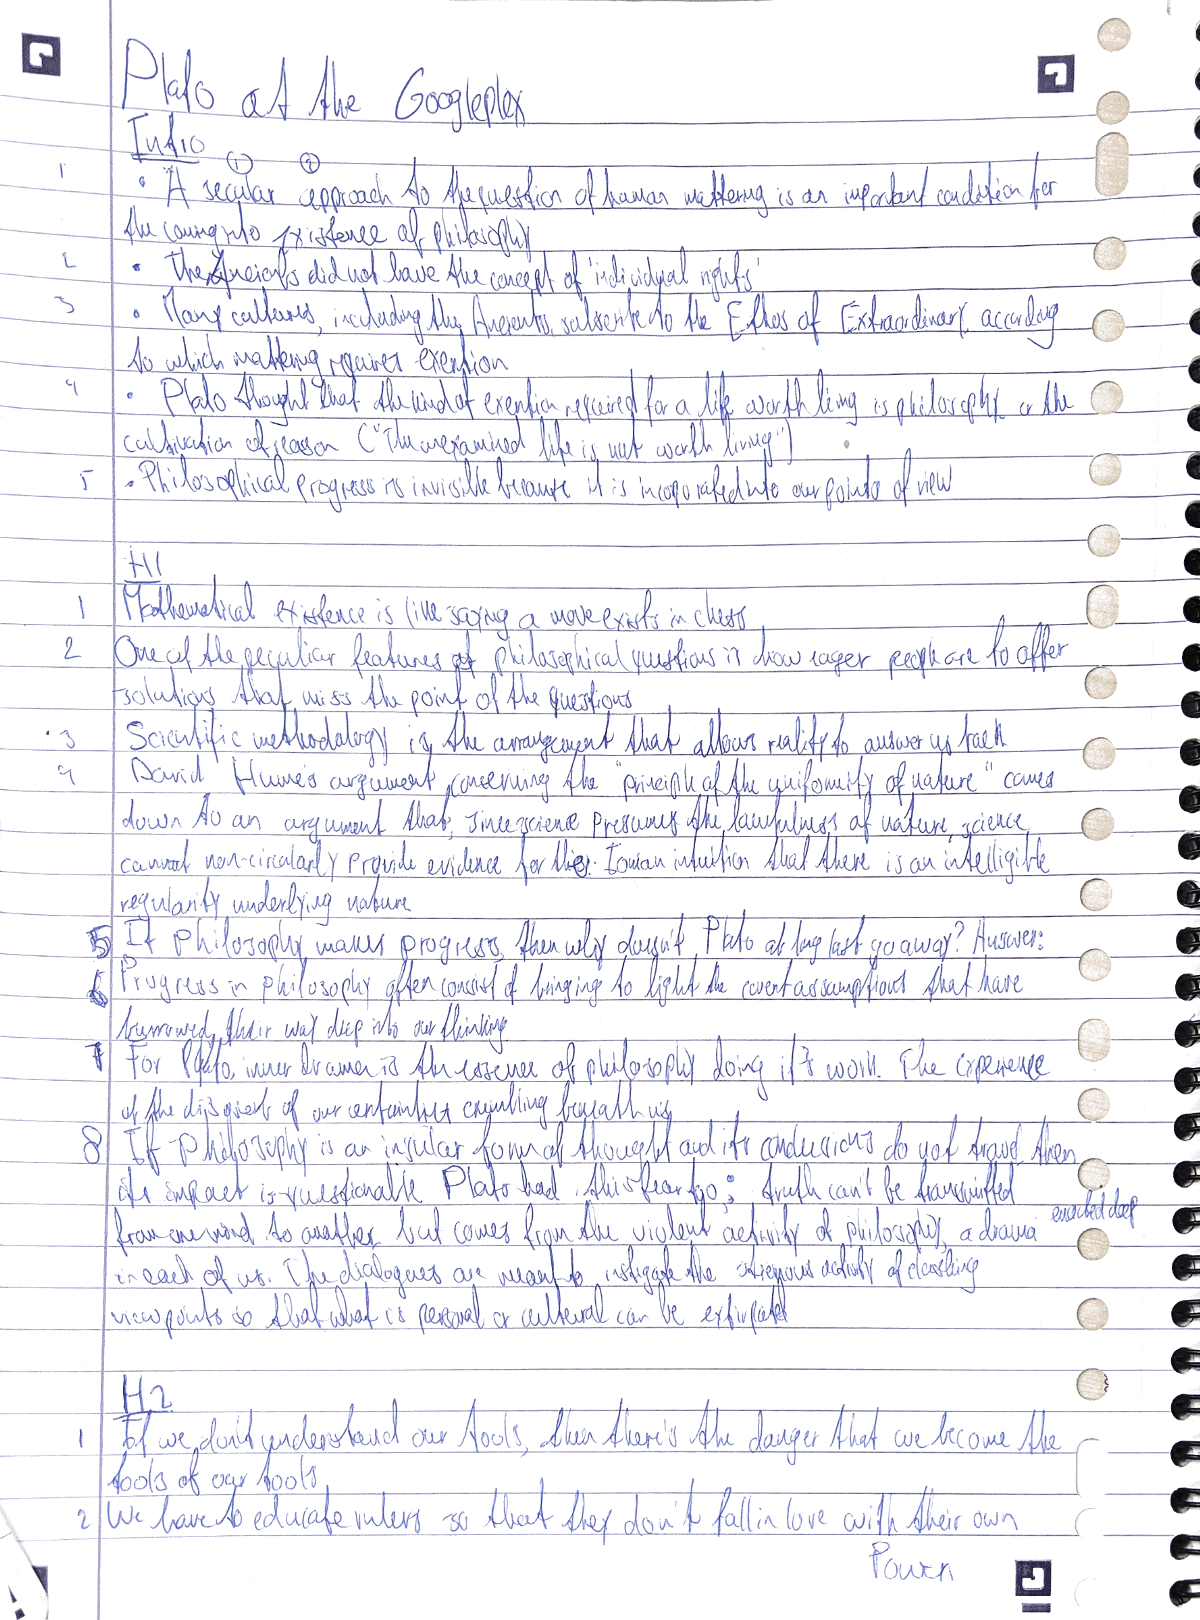 Plato at the Googleplex
Intro
① ②
1 • A secular approach to the question of human mattering is an important condition for
the coming into existence of philosophy
2 • The Ancients did not have the concept of 'individual rights'
3 • Many cultures, including the Ancients, subscribe to the Ethos of Extraordinary, according
to which mattering requires exertion
4 • Plato thought that the kind of exertion required for a life worth living is philosophy, or the
cultivation of reason ("The unexamined life is not worth living")
5 • Philosophical progress is invisible because it is incorporated into our points of view
H1
1 Mathematical existence is like saying a move exists in chess
2 One of the peculiar features of philosophical questions is how eager people are to offer
solutions that miss the point of the questions
3 Scientific methodology is the arrangement that allows reality to answer us back
4 David Hume's argument concerning the "principle of the uniformity of nature" comes
down to an argument that, since science presumes the lawfulness of nature, science
cannot non-circularly provide evidence for the Ionian intuition that there is an intelligible
regularity underlying nature
5 If philosophy makes progress, then why doesn't Plato at long last go away? Answer:
6 Progress in philosophy often consist of bringing to light the covert assumptions that have
burrowed their way deep into our thinking
7 For Plato, inner drama is the essence of philosophy doing it's work. The experience
of the disquiet of our certainties crumbling beneath us
8 If philosophy is an insular form of thought and its conclusions do not travel, then
its impact is questionable. Plato had this fear too: truth can't be transmitted
from one mind to another but comes from the violent activity of philosophy, a drama enacted deep
in each of us. The dialogues are meant to instigate the strenuous activity of clashing
viewpoints so that what is personal or cultural can be extirpated
H2
1 If we don't understand our tools, then there's the danger that we become the
tools of our tools
2 We have to educate rulers so that they don't fall in love with their own
Power